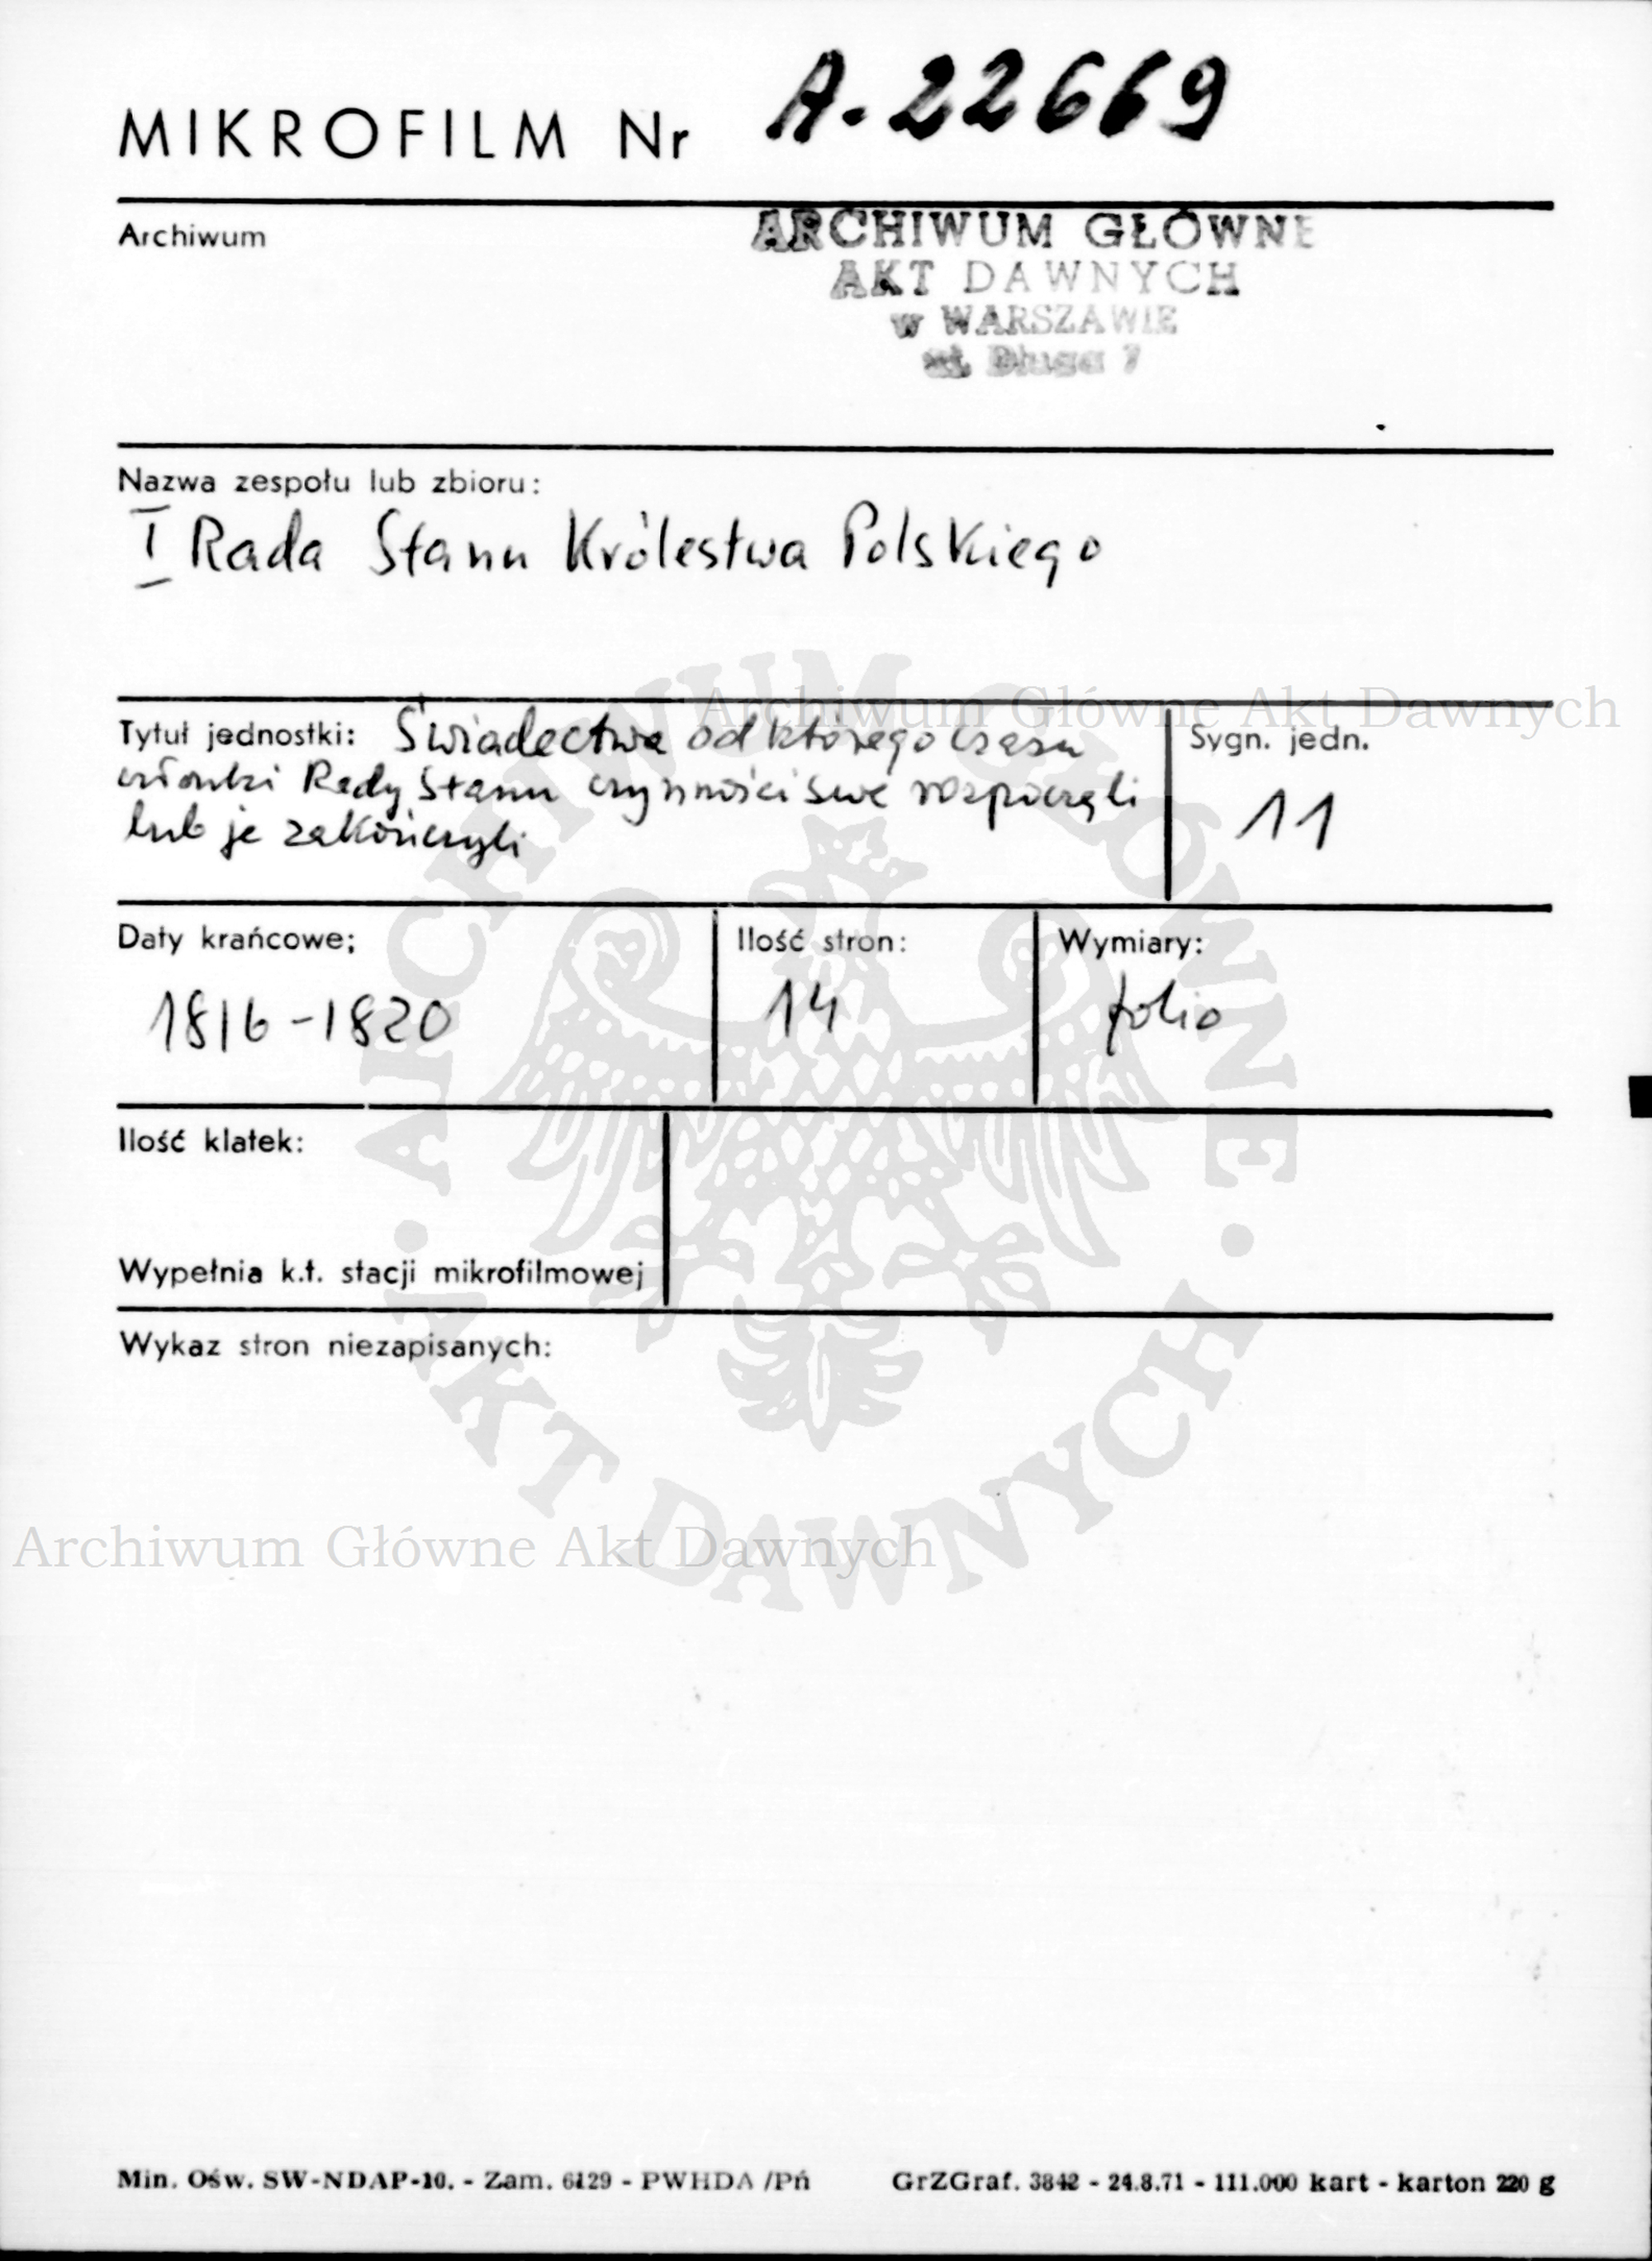 MIKROFILM Nr A-22669
Archiwum
ARCHIWUM GŁÓWNE
AKT DAWNYCH
w WARSZAWIE
ul. Długa 7
Nazwa zespołu lub zbioru:
I Rada Stanu Królestwa Polskiego
Archiwum Główne Akt Dawnych
Tytuł jednostki: Świadectwa od którego czasu
członki Rady Stanu czynności swe rozpoczęli
lub je zakończyli
Sygn. jedn.
11
Daty krańcowe;
1816-1820
Ilość stron:
14
Wymiary:
folio
Ilość klatek:
Wypełnia k.t. stacji mikrofilmowej
Wykaz stron niezapisanych:
ARCHIWUM GŁÓWNE
AKT DAWNYCH
Archiwum Główne Akt Dawnych
Min. Ośw. SW-NDAP-10. - Zam. 6129 - PWHDA /Pń GrZGraf. 3842 - 24.8.71 - 111.000 kart - karton 220 g